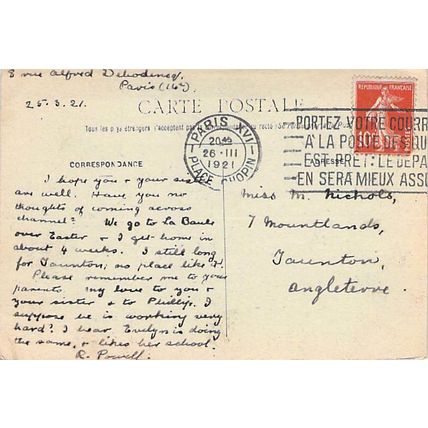 8 rue Alfred Dehodencq.
Paris (16e)
25.3.21.
CARTE POSTALE
CORRESPONDANCE
I hope you & your sister
are well. Have you no
thoughts of coming across
channel? We go to La Baule
over Easter & I get home in
about 4 weeks. I still long
for Taunton; no place like it.
Please remember me to your
parents my love to you &
your sister & to Phillip. I
suppose he is working very
hard? I hear Evelyn is doing
the same, & likes her school.
R. Powell.
RÉPUBLIQUE FRANÇAISE
PARIS XVI
20
26 · III
1921
PLACE CHOPIN
PORTEZ VOTRE COURR
A LA POSTE DES QU
EST PRET: LE DEPA
EN SERA MIEUX ASSU
Miss M. Nichols,
7 Mountlands,
Taunton,
Angleterre.